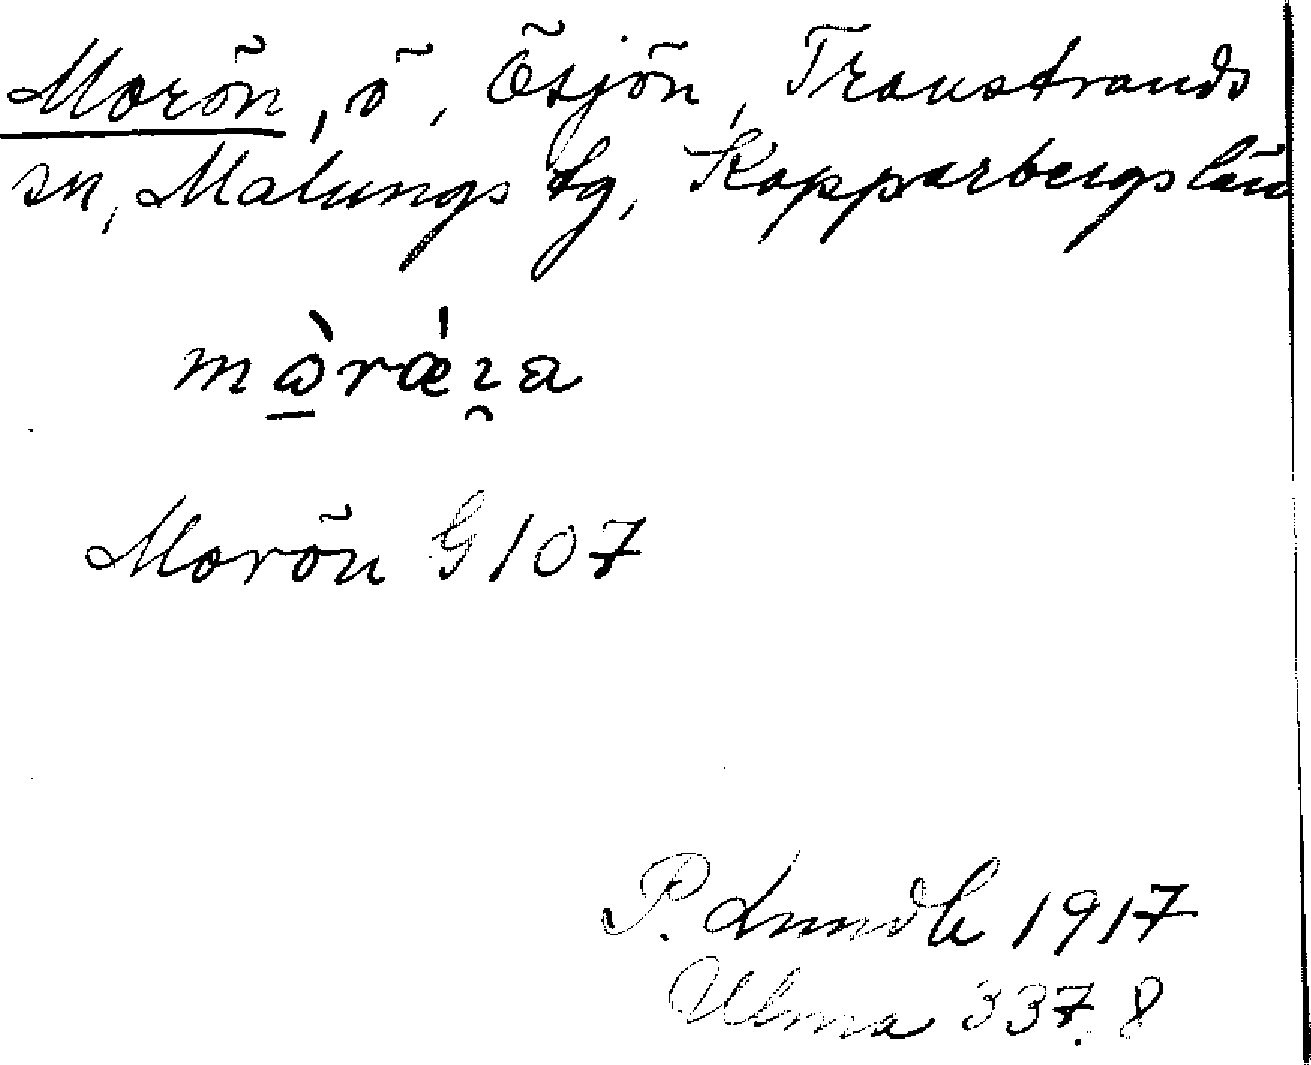 Morön, ö, Ösjön, Transtrands
sn, Malungs tg, Kopparbergs län
Morön G 107
P. Lundh 1917
Ulma 337.8